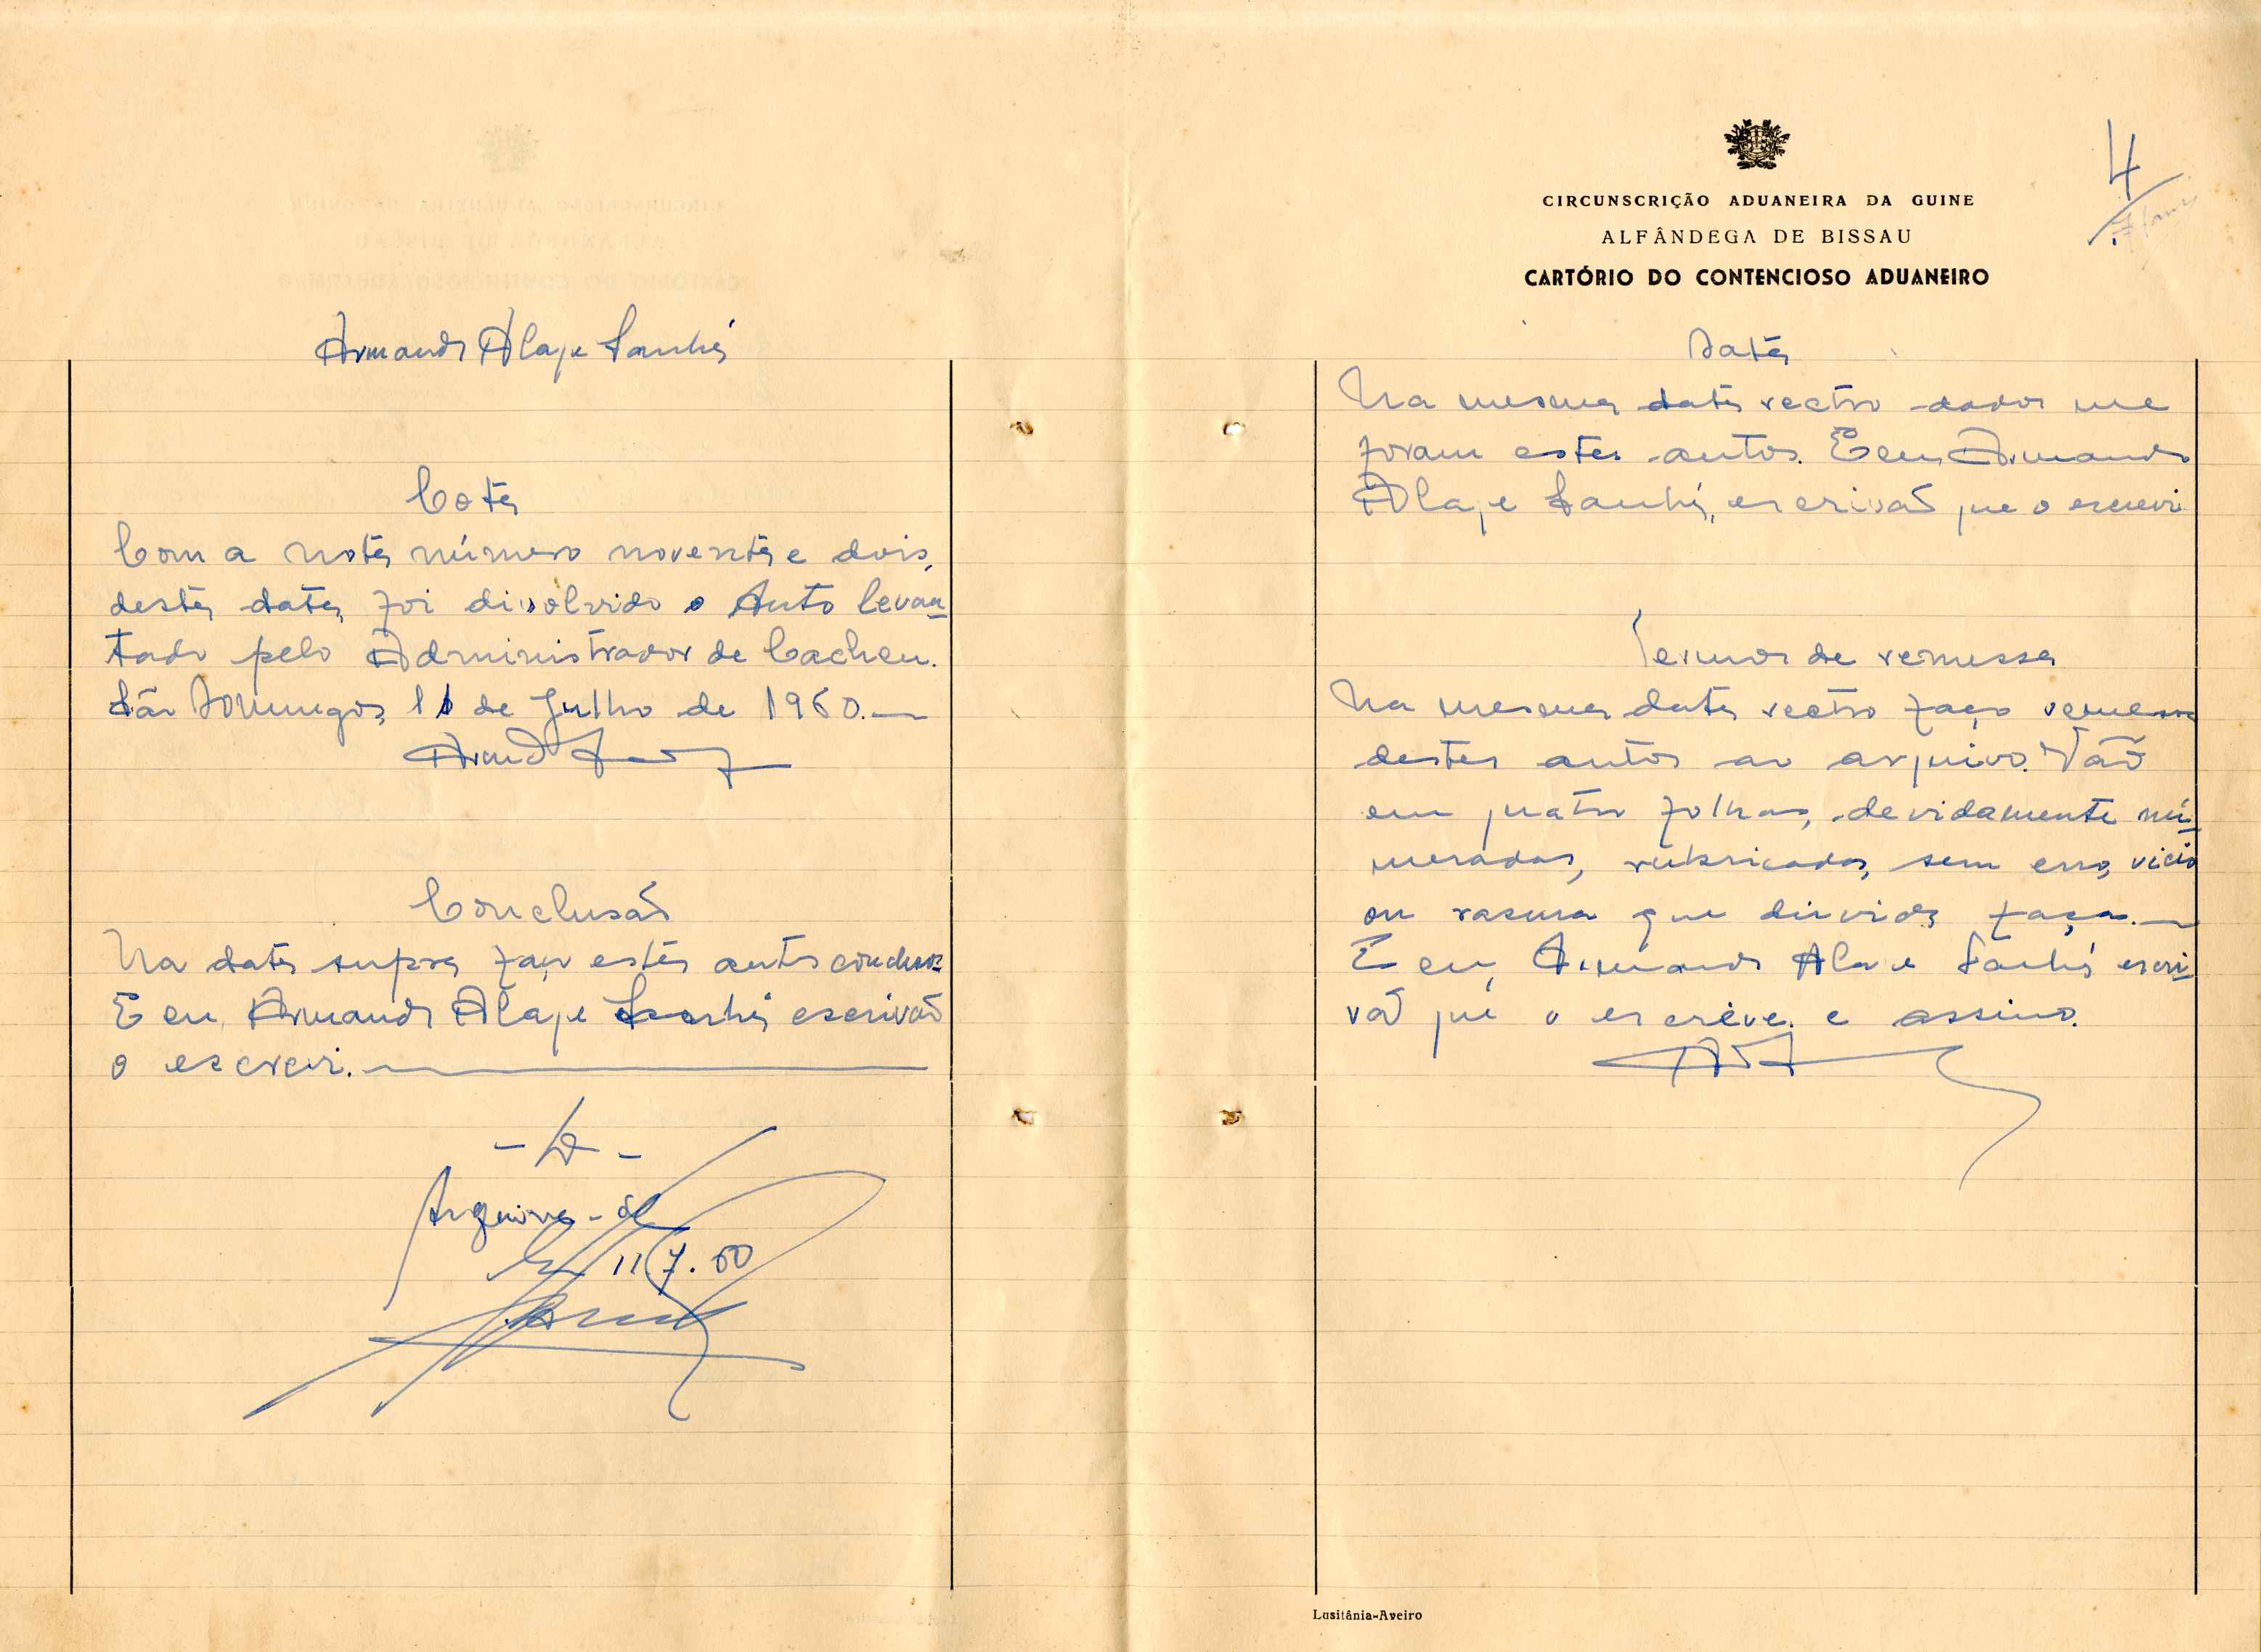 Armando Alaje Sanhá
Cota
Com a nota número noventa e dois,
desta data, foi divolvido o Auto levan-
tado pelo Administrador de Cacheu.
São Domingos, 11 de Julho de 1960.—
Conclusão
Na data supra faço estes autos conclusos
E eu, Armando Alaje Sanhá escrivão
o escrevi.
Arquive-se
Em 11/7.60
CIRCUNSCRIÇÃO ADUANEIRA DA GUINE
ALFÂNDEGA DE BISSAU
CARTÓRIO DO CONTENCIOSO ADUANEIRO
4
Data
Na mesma data rectro dados me
foram estes autos. E eu, Armando
Alaje Sanhá, escrivão que o escrevi
Termos de remessa
Na mesma data rectro faço remessa
destes autos ao arquivo. Vão
em quatro folhas, devidamente nú-
meradas, rubricadas, sem erro, vicio
ou rasura que dúvida faça.—
E eu, Armando Alaje Sanhá escri-
vão que o escreve e assino.
Lusitânia-Aveiro